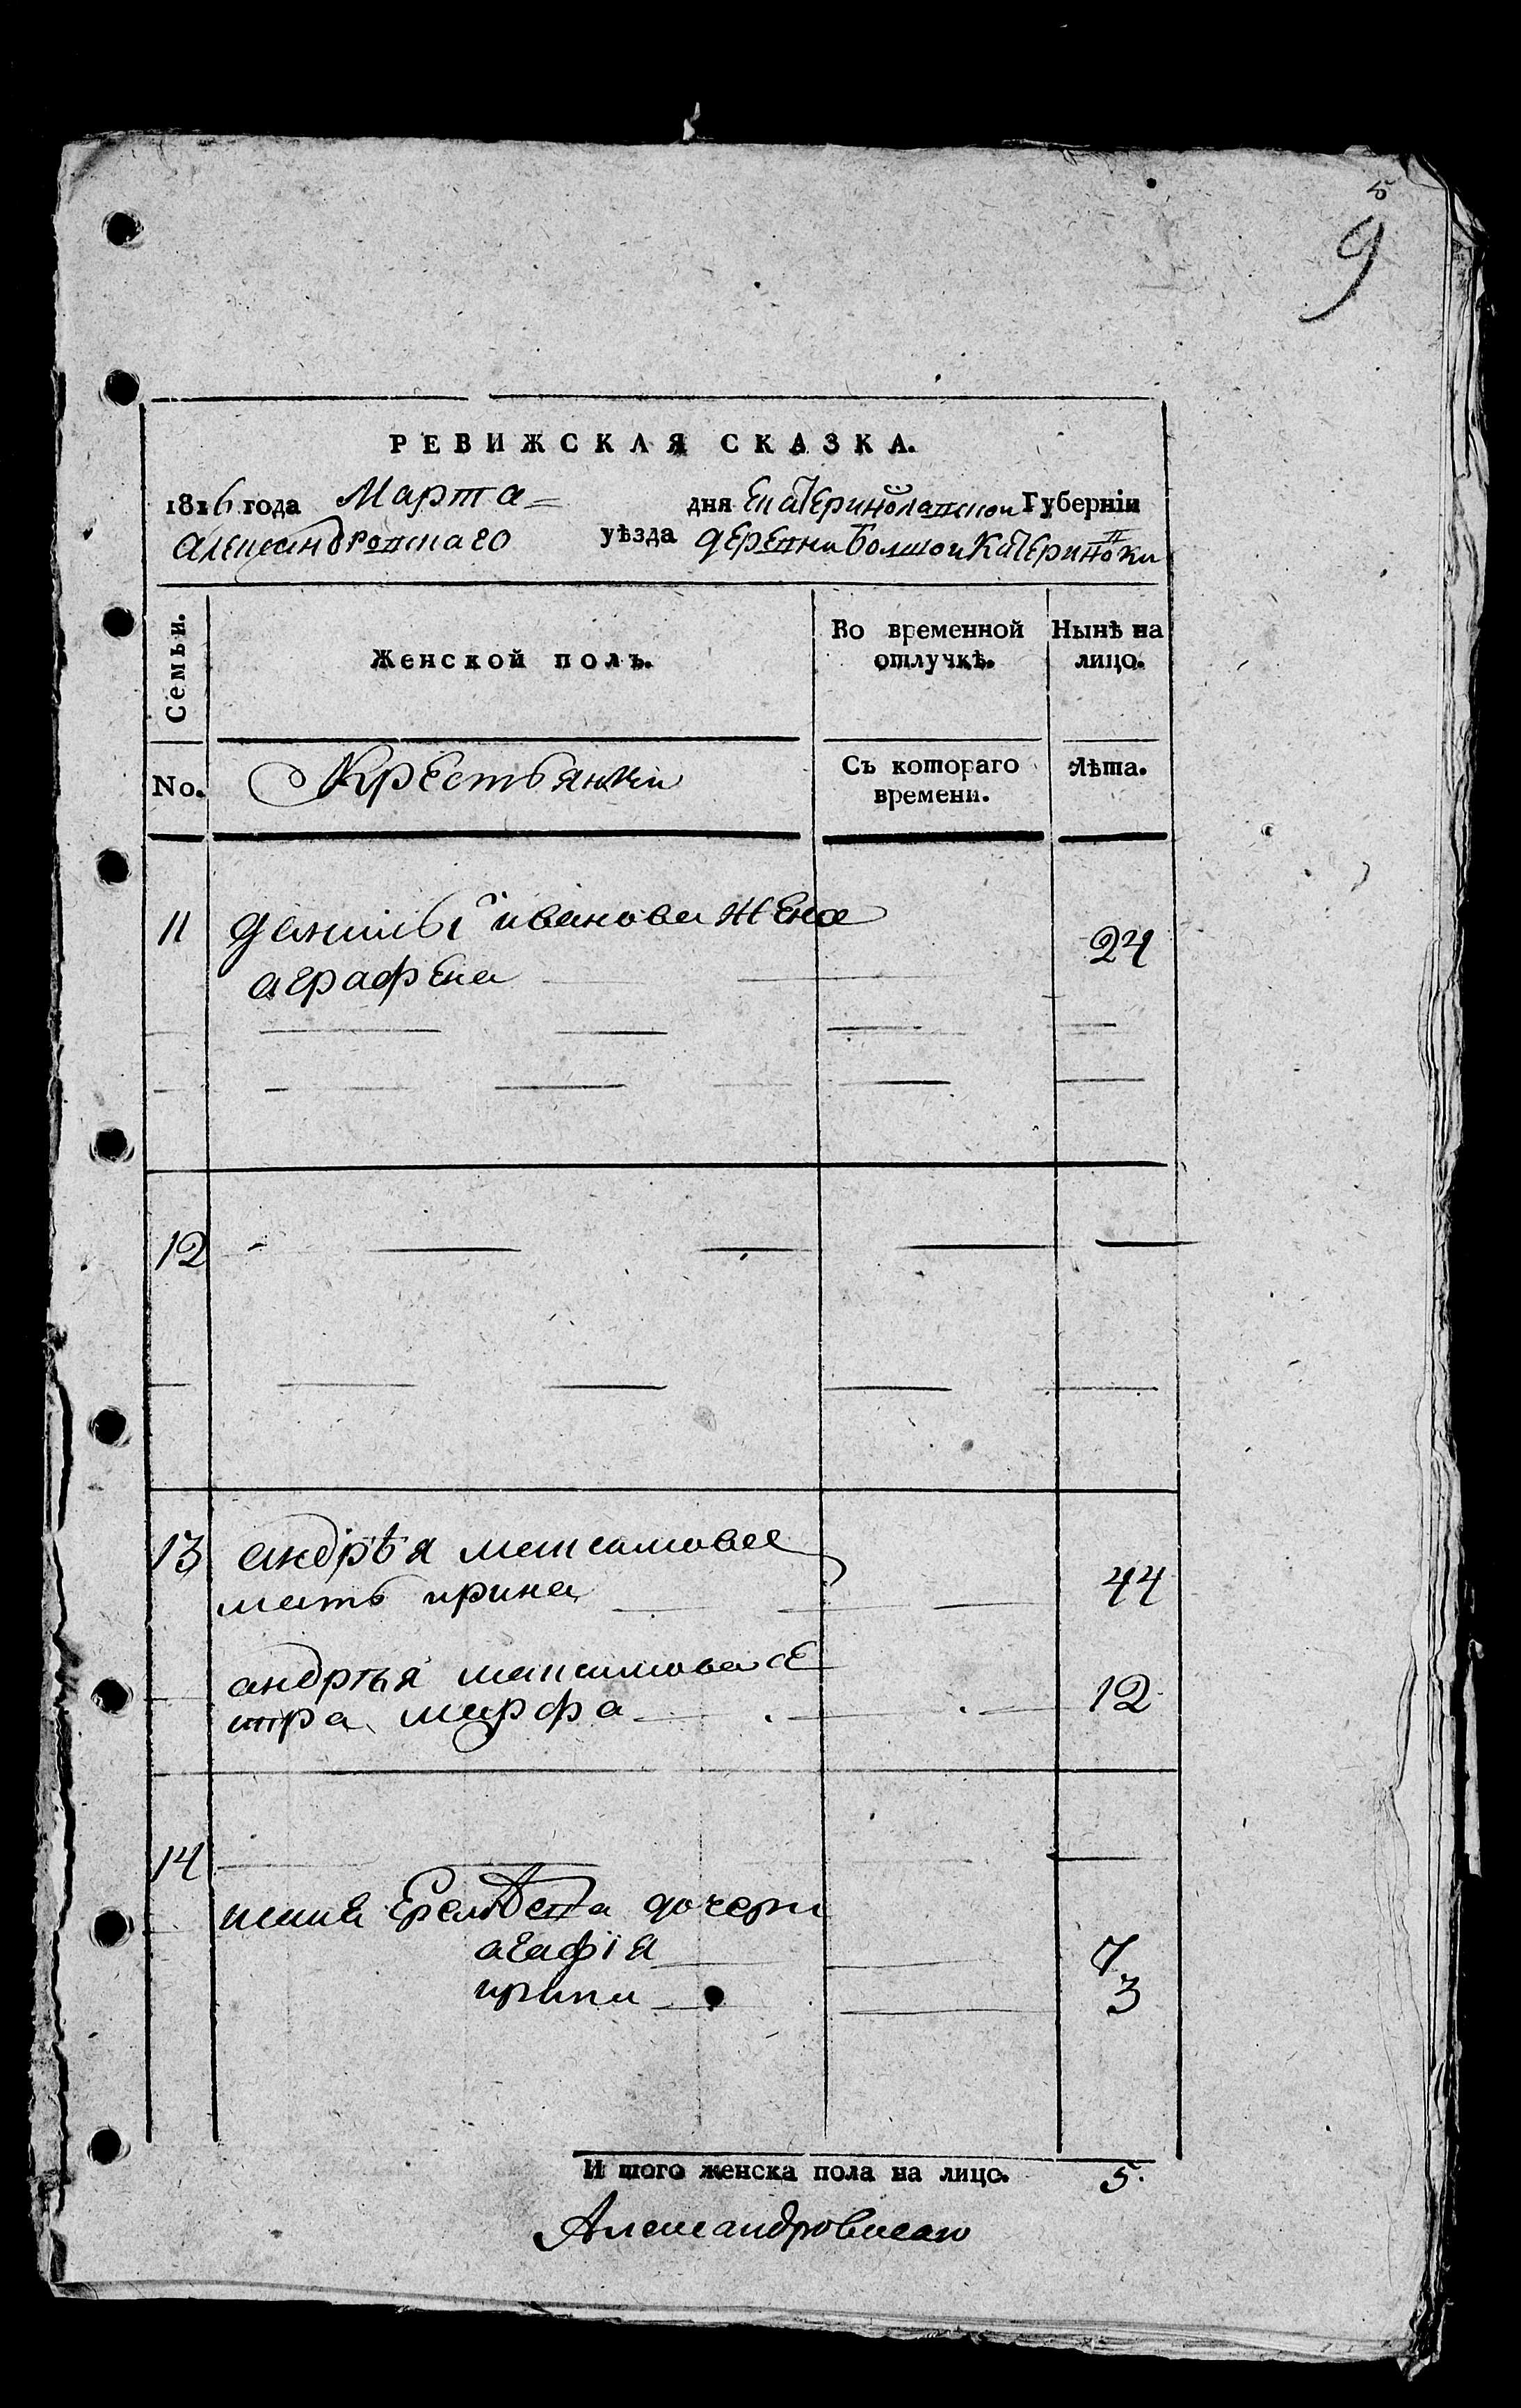 5
9
РЕВИЖСКАЯ СКАЗКА.
1816 года Марта дня Екатеринославской Губерніи
Александровскаго уѣзда деревни Большой Катериновки
Семьи. Женской полъ. Во временной отлучкѣ. Нынѣ на лицо.
No. Крестьянки Съ котораго времени. Лѣта.
11 данилы иванова жена
аграфена 24
12
13 андрѣя максимова
мать ирина 44
андрѣя максимова се
стра марфа 12
14
дочери
агафія 7
ирина 3
И того женска пола на лицо. 5.